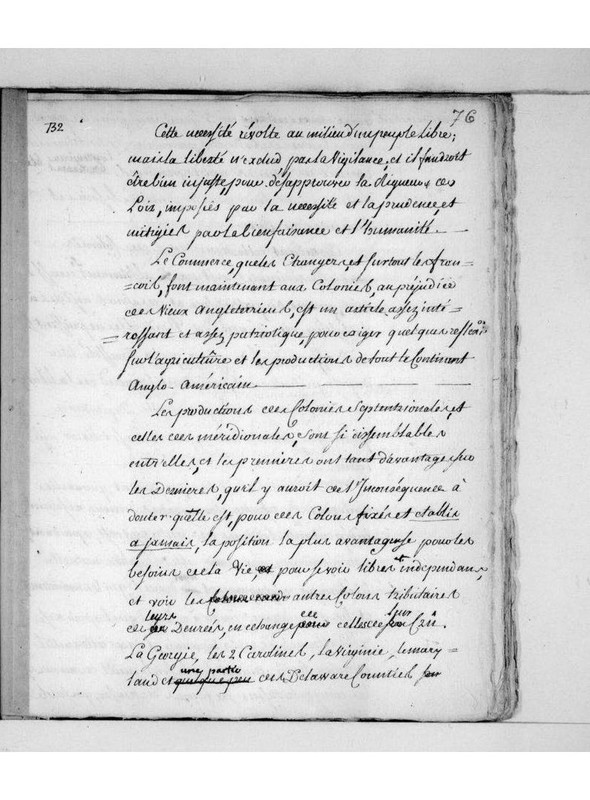 76
132
Cette necessité révolte au milieu d'un peuple Libre;
mais la liberté n'exclud, pas la Vigilance, et il faudroit
être bien injuste pour désapprouver la Rigueur de ces
Loix, imposées par la necessité et la prudence, et
mitigées par la bienfaisance et l'humanité.
Le Commerce, que les Etrangers, et surtout les fran=
=cois, font maintenant aux Colonies, au préjudice
des Vieux Angleterriens, est un article assez inté=
=ressant et assez patriotique, pour exiger quelques reflexõns
sur l'agriculture et les productions de tout le Continent
Anglo-Américain
Les productions des Colonies Septentrionales, et
celles des méridionales, sont si dissemblables
entr'elles, et les premieres ont tant d'avantages sur
les Dernieres, qu'il y auroit de l'Inconséquence à
douter qu'elle est, pour des Colons fixés et etablis
a jamais, la position la plus avantageuse pour les
besoins de la Vie et pour se voir libres et independans,
et voir les autres Colons tributaires
de leurs Denrées, en echange de celles de leur Crû.
La Georgie, les 2 Carolines, la Virginie, le mary-
land et une partie quelque peu des Delaware Counties